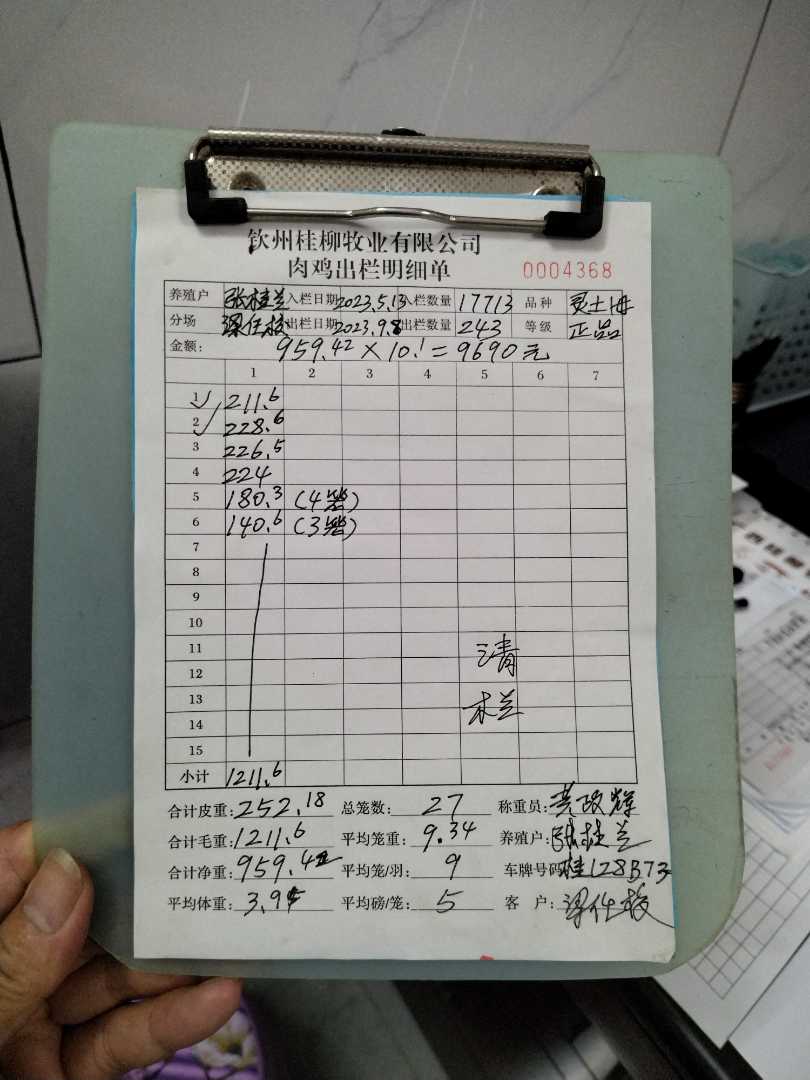 钦州桂柳牧业有限公司
肉鸡出栏明细单 0004368
养殖户 张桂兰 入栏日期 2023.5.13 入栏数量 17713 品种
分场 出栏日期 2023.9.8 出栏数量 243 等级 正品
金额: 959.42 × 10.1 = 9690元
1 2 3 4 5 6 7
1 211.6
2 228.6
3 226.5
4 224
5 180.3 (4笼)
6 140.6 (3笼)
7
8
9
10
11 清
12
13 栏
14
15
小计 1211.6
合计皮重: 252.18 总笼数: 27 称重员: 黄政辉
合计毛重: 1211.6 平均笼重: 9.34 养殖户: 张桂兰
合计净重: 959.42 平均笼/羽: 9 车牌号码: 桂128B73
平均体重: 3.95 平均磅/笼: 5 客 户: